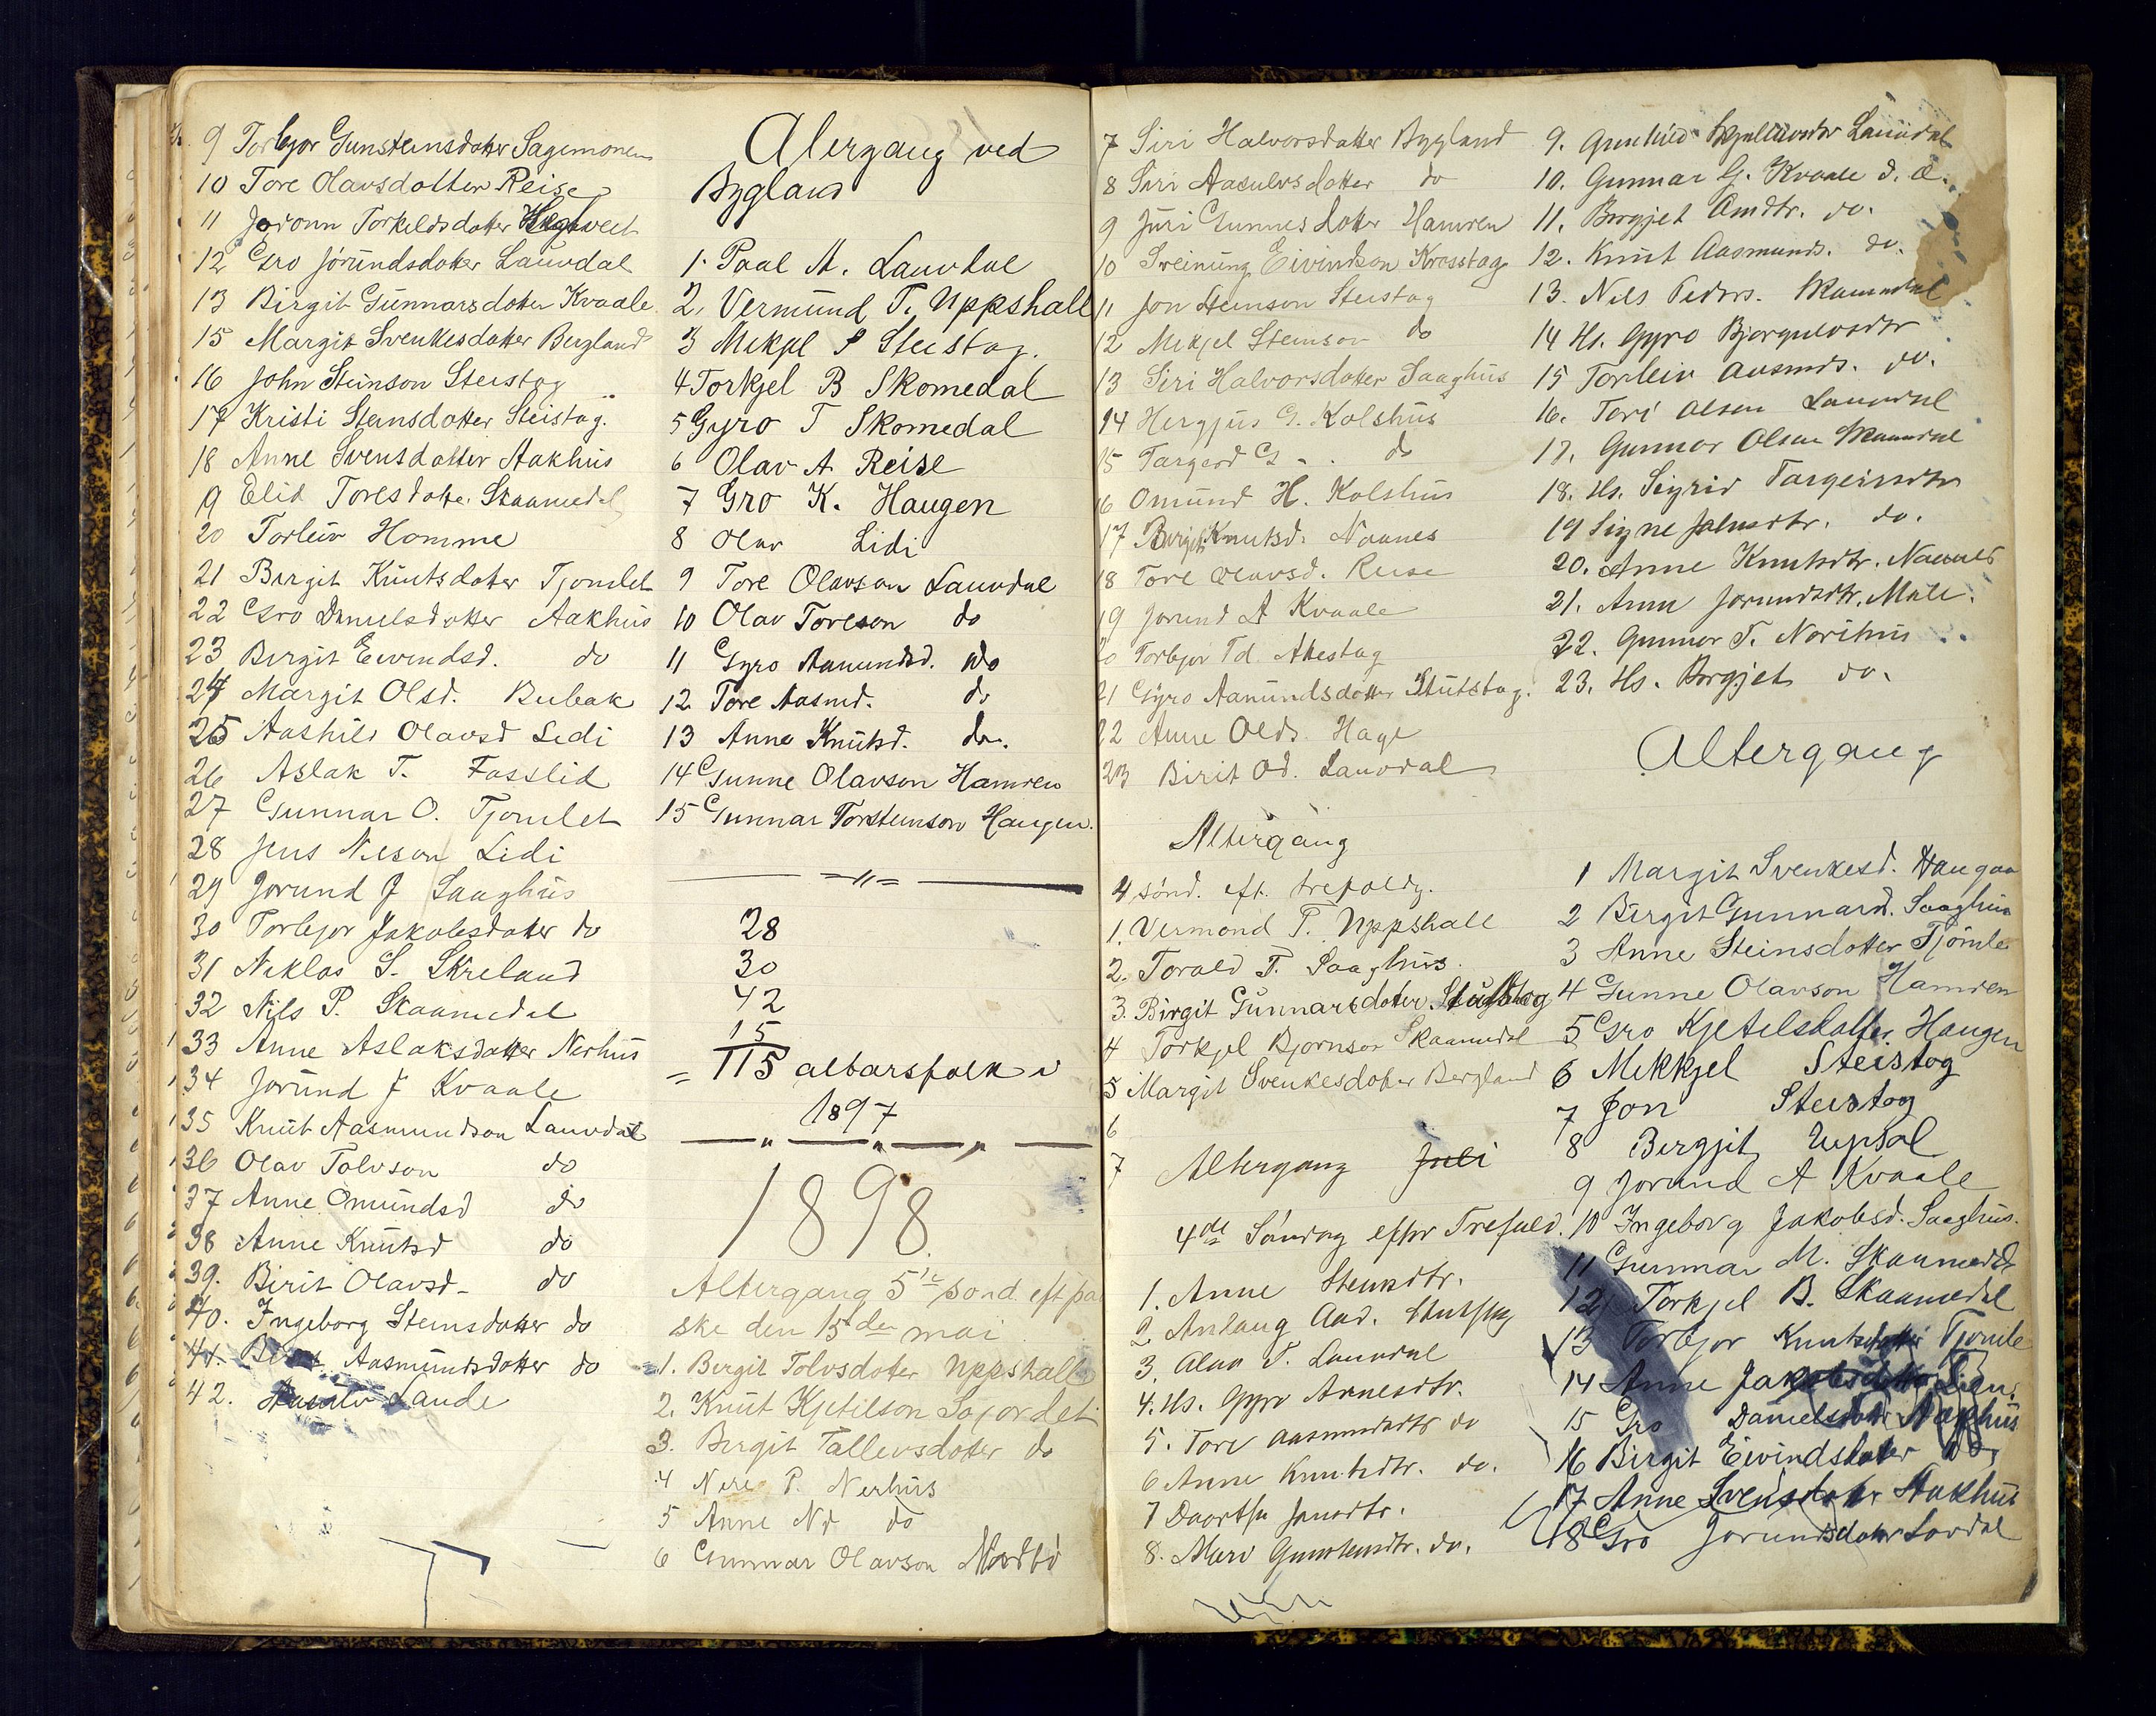 9 Torbjor Gunsteinsdatter Sagemonen
10 Tore Olavsdotter Reise
11 Joronn Torkeldsdotter
12 Gro Jorundsdotter Lauvdal
13 Birgit Gunnarsdotter Kvaale
15 Margit Svenkesdatter Bergland
16 John Steinson Steistog
17 Kristi Steinsdotter Steistog.
18 Anne Svensdotter Aakhus
19 Elid Toresdotter Skaamedal
20 Torleiv Homme
21 Birgit Knutsdoter Tjomlet
22 Gro Danielsdotter Aakhus
23 Bergit Eivindsd. do
24 Margit Olsd. Bubak
25 Aashild Olavsd Lidi
26 Aslak T. Fosslid
27 Gunnar O. Tjomlet
28 Jens Nilson Lidi
29 Jorund J Saaghus
30 Torbjor Jakobsdatter do
31 Niklas S. Skreland
32 Nils P. Skaamedal
33 Anne Aslaksdatter Nerhus
34 Jorund J Kvaale
35 Knut Aasmundson Lauvdal
36 Olav Tolvson do
37 Anne Omundsd do
38 Anne Knutsd do
39. Birit Olavsd. do
40. Ingeborg Steinsdatter do
41. Aasmundsdotter do
42. Lande
Altergang ved
Bygland
1. Paal A. Lauvdal
2. Vermund T. Uppshall
3 Mikjel S Steistog.
4 Torkjel B Skomedal
5 Gyro T Skomedal
6 Olav A Reise
7 Gro K. Haugen
8 Olav Lidi
9 Tore Olavson Lauvdal
10 Olav Toreson do
11 Gyro Aanundsd. do
12 Tore Aasmd. do
13 Anne Knutsd. do.
14 Gunne Olavson Hamren
15 Gunnar Torsteinson Haugen.
28
30
42
15
= 115 altarsfolk i
1897
1898.
Altergang 5te sønd. eft pa
ske den 15den mai
1. Bergit Tolvsdotter Uppshall
2. Knut Kjetilson Sofordet
3. Bergit Tallevsdotter do
4 Neri P. Nerhus
5 Anne Nd do
6 Gunnar Olavson Nordbö
7 Siri Halvorsdatter Bygland
8 Siri Aasulvsdotter do
9 Juri Gunnesdotter Hamren
10 Sveinung Eivindson Krosstog
11 Jon Steinson Steistog
12 Mikjel Steinson do
13 Siri Halvorsdotter Saaghus
14 Hergjus G. Kolshus
15 Targerd G - . do
16 Omund H. Kolshus
17 Birgit Knutsd. Noanes
18 Tore Olavsd. Reise
19 Jorund A Kvaale
20 Torbjor Td Akestog
21 Gyro Aanundsdotter Stutstog.
22 Anne Olds. Hage
23 Birit Od. Lauvdal
Altergang
4 sönd. eft. trefoldg.
1. Vermond T. Uppshall
2. Torald T. Saaghus.
3. Birgit Gunnarsdoter
4 Torkjel Bjornson Skaamedal
5 Margit Svenkesdotter Bergland
6
7
Altergang Juli
4de Söndag efter Trefold.
1. Anne Steinsdtr.
2 Anlaug Aad. Stutstog
3. Olav T. Lauvdal
4. Hs. Gyro Arnesdtr.
5. Tore Aasmundsdtr do
6 Anne Knutsdtr. do.
7 Daortha Jonsdtr.
8. Mari Gunsteinsdtr. do.
9. Gunhild Lauvdal
10. Gunnar G. Kvaale d. æ.
11. Borgjet Amdtr. do.
12. Knut Aasmunds. do.
13. Nils Peders. Skaamedal
14 Hs. Gyro Bjorgulvsdtr
15 Torleiv Aasmds. do.
16. Tori Olsen Lauvdal
17. Gunnar Olsen Skaamedal
18. Hs. Sigrid Targeirsdtr
19 Signe Jolnsdtr. do.
20. Anne Knutsdtr. Noanes
21. Anne Jorundsdtr. Mole.
22. Gunnar T. Norihus
23. Hs. Borgjet do.
Altergang
1 Margit Svenkesd. Haugaa
2 Birgit Gunnarsd. Saaghus
3 Anne Steinsdotter Tjömle
4 Gunne Olavson Hamren
5 Gro Kjetilsdatter Haugen
6 Mikkjel Steistog
7 Jon Steistog
8 Bergjit Upsal
9 Jorund A Kvaale
10 Ingeborg Jakobsd. Saaghus.
11 Gunnar M. Skaamedal
12 Torkjel B. Skaamedal
13 Torbjor Knutsdotter Tjomle
14 Anne Jakobsdotter
15 Gro Danielsdotter Aakhus
16 Birgit Eivindsdatter do
17 Anne Svensdotter Aakhus
18 Gro Jorundsdotter Lovdal